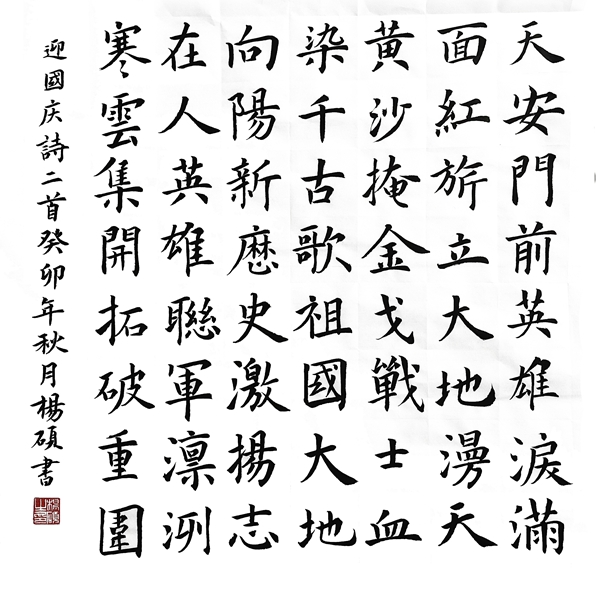 天安門前英雄淚滿
面紅旂立大地漫天
黃沙掩金戈戰士血
染千古歌祖國大地
向陽新厯史激揚志
在人英雄聯軍澟洌
寒雲集開拓破重圍
迎國庆詩二首癸卯年秋月楊碩書